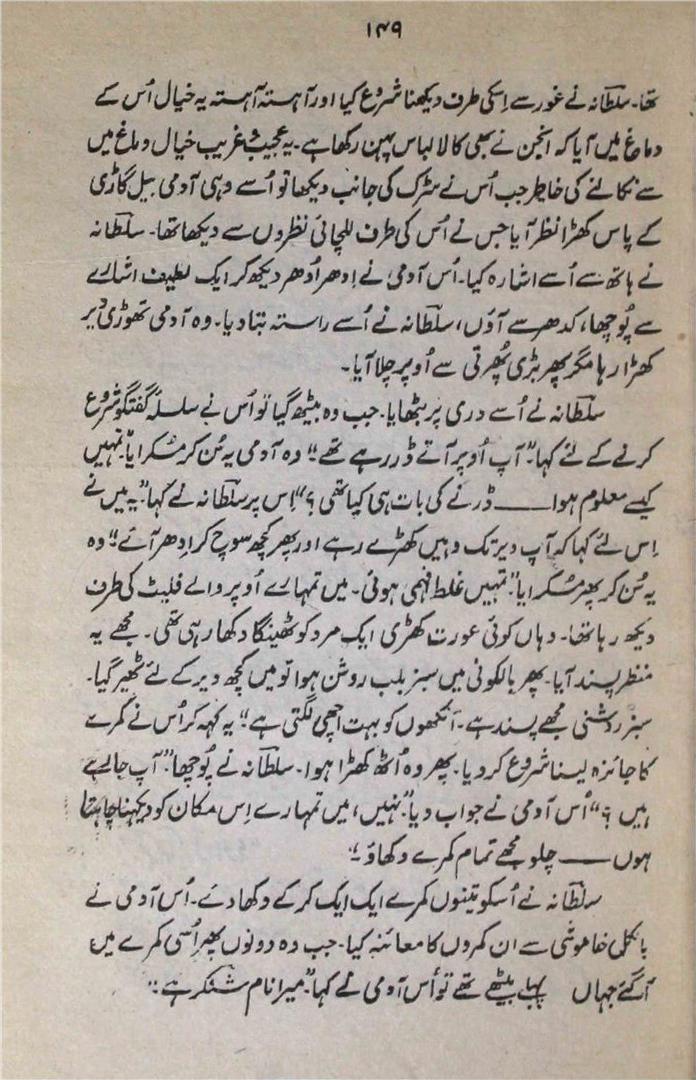 ۱۴۹
تھا۔ سلطانہ نے غور سے اِسکی طرف دیکھنا شروع کیا اور آہستہ آہستہ یہ خیال اُس کے
دماغ میں آیا کہ انجن نے بھی کالا لباس پہن رکھا ہے۔ یہ عجیب و غریب خیال دماغ میں
سے نکالنے کی خاطر جب اُس نے سڑک کی جانب دیکھا تو اُسے وہی آدمی بیل گاڑی
کے پاس کھڑا نظر آیا جس نے اُس کی طرف للچائی نظروں سے دیکھا تھا۔ سلطانہ
نے ہاتھ سے اُسے اشارہ کیا۔ اُس آدمی نے اِدھر اُدھر دیکھ کر ایک لطیف اشارے
سے پُوچھا، کدھر سے آؤں، سلطانہ نے اُسے راستہ بتا دیا۔ وہ آدمی تھوڑی دیر
کھڑا رہا مگر پھر بڑی پُھرتی سے اُوپر چلا آیا۔
سلطانہ نے اُسے دری پر بٹھایا۔ جب وہ بیٹھ گیا تو اُس نے سلسلہ گفتگو شروع
کرنے کے لئے کہا۔"آپ اُوپر آتے ڈر رہے تھے"۔ وہ آدمی یہ سُن کر مُسکرایا۔"تمہیں
کیسے معلوم ہوا ــــــ ڈرنے کی بات ہی کیا تھی؟" اِس پر سلطانہ نے کہا۔"یہ میں نے
اِس لئے کہا کہ آپ دیر تک وہیں کھڑے رہے اور پھر کچھ سوچ کر اِدھر آئے"۔ وہ
یہ سُن کر پھر مُسکرایا۔"تمہیں غلط فہمی ہوئی۔ میں تمہارے اُوپر والے فلیٹ کی طرف
دیکھ رہا تھا۔ وہاں کوئی عورت کھڑی ایک مرد کو ٹھینگا دکھا رہی تھی۔ مجھے یہ
منظر پسند آیا۔ پھر بالکونی میں سبز بلب روشن ہوا تو میں کچھ دیر کے لئے ٹھیر گیا۔
سبز روشنی مجھے پسند ہے۔ آنکھوں کو بہت اچھی لگتی ہے"۔ یہ کہہ کر اُس نے کمرے
کا جائزہ لینا شروع کر دیا۔ پھر وہ اُٹھ کھڑا ہوا۔ سلطانہ نے پُوچھا۔"آپ جا رہے
ہیں؟" اُس آدمی نے جواب دیا۔"نہیں، میں تمہارے اِس مکان کو دیکھنا چاہتا
ہوں ــــــ چلو مجھے تمام کمرے دکھاؤ"۔
سلطانہ نے اُسکو تینوں کمرے ایک ایک کر کے دکھا دئے۔ اُس آدمی نے
بالکل خاموشی سے ان کمروں کا معائنہ کیا۔ جب وہ دونوں پھر اُسی کمرے میں
آ گئے جہاں پہلے بیٹھے تھے تو اُس آدمی نے کہا۔"میرا نام شنکر ہے"۔